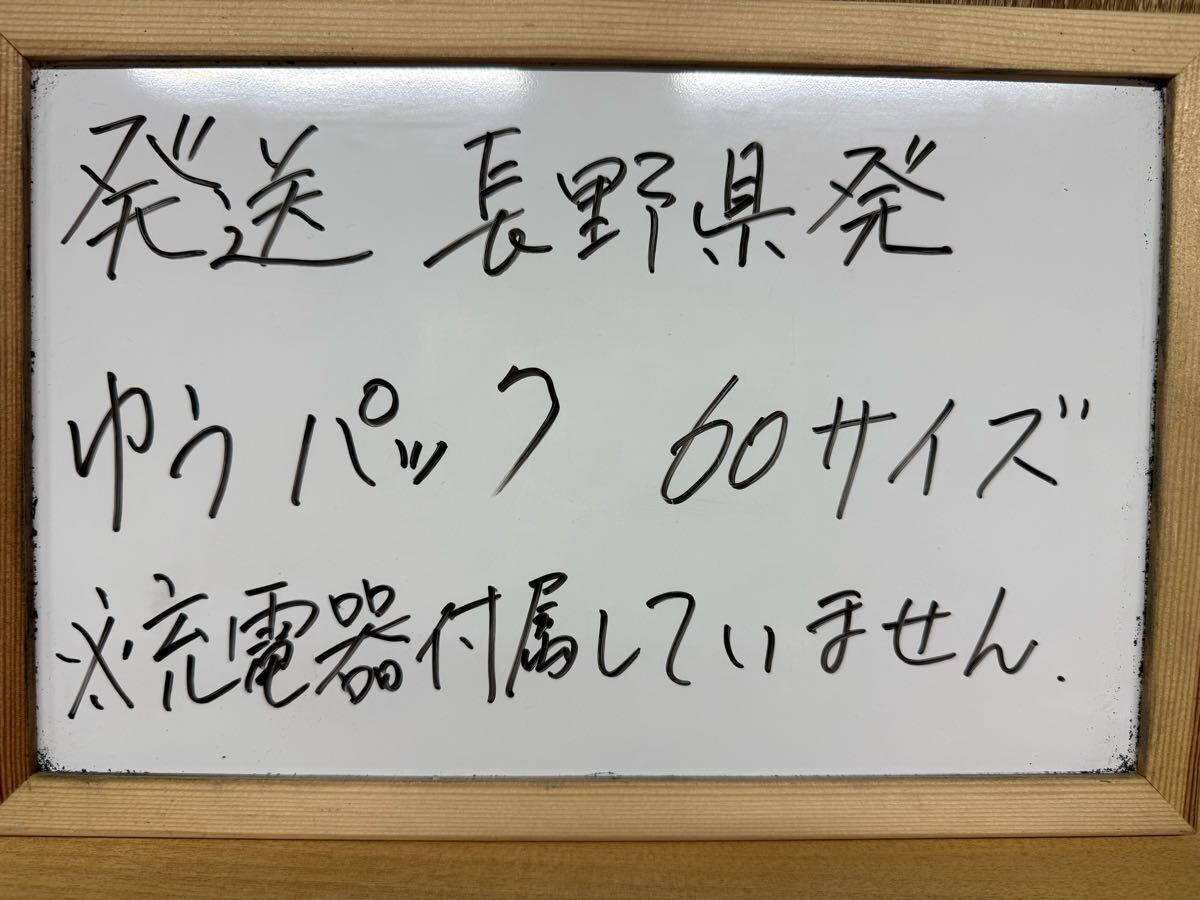 発送 長野県発
ゆうパック 60サイズ
※充電器付属していません.